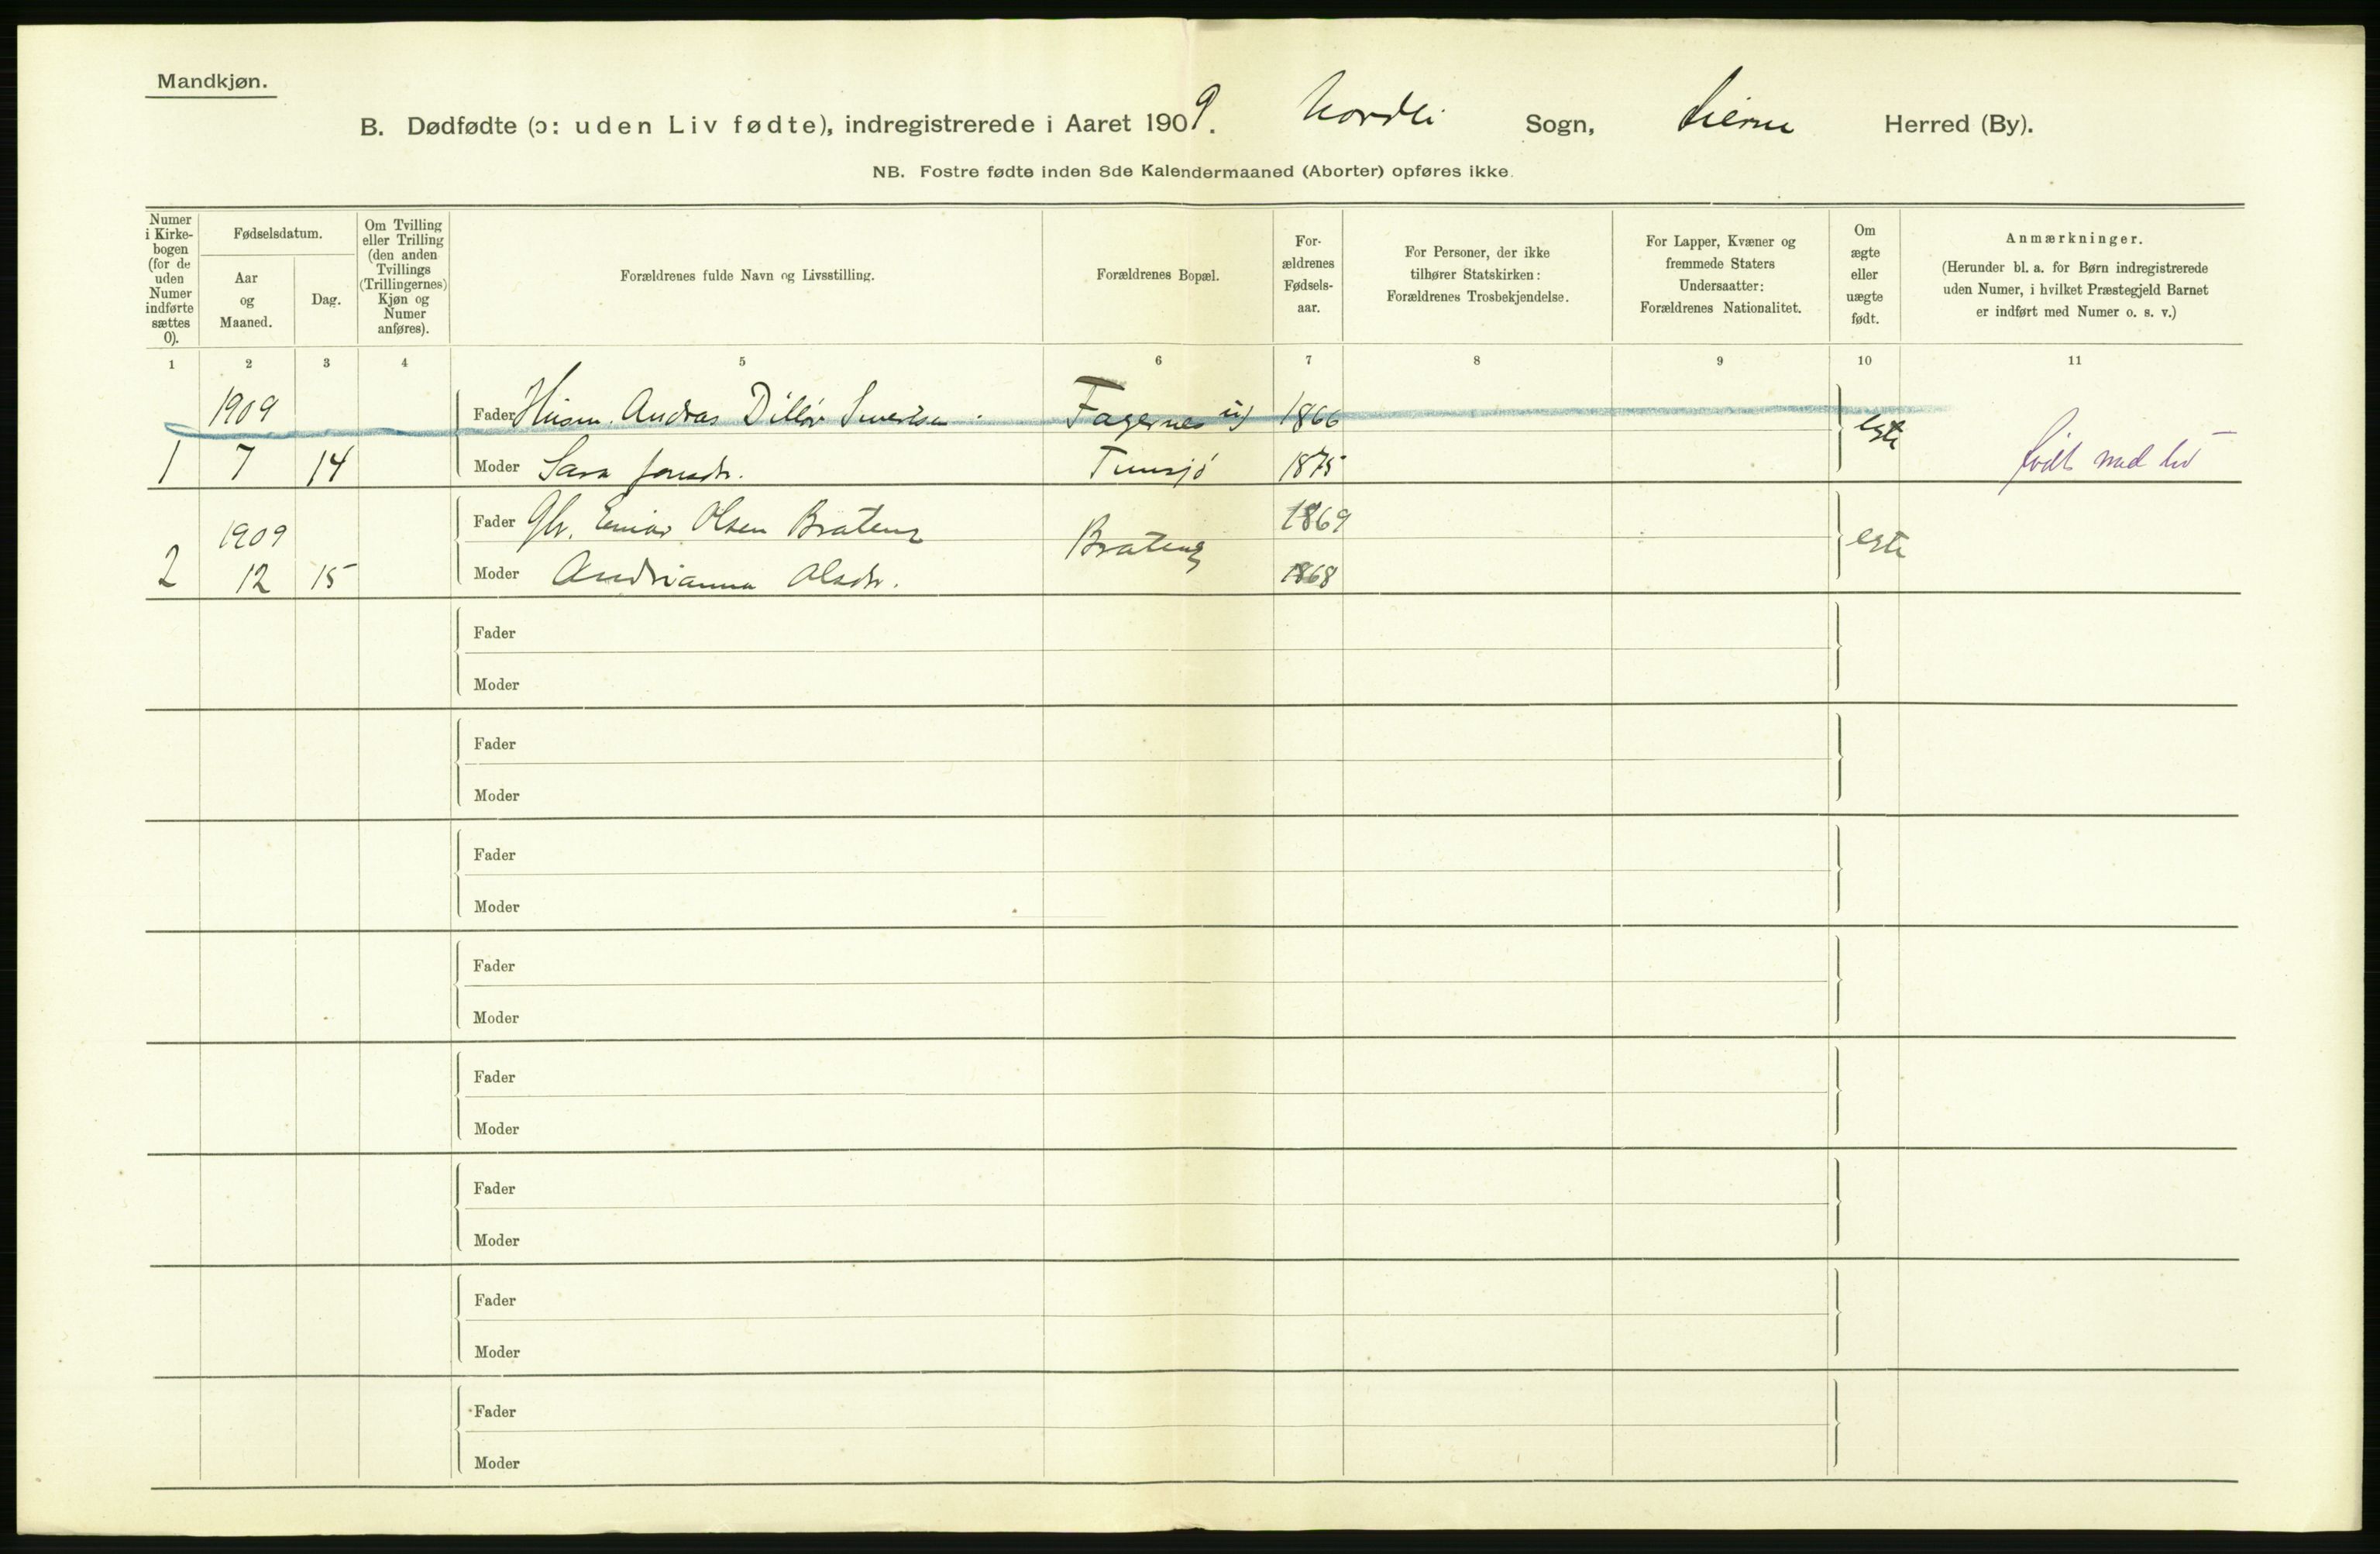 Mandkjøn.
B. Dødfødte (ɔ: uden Liv fødte), indregistrerede i Aaret 1909. Nordli Sogn, Lierne Herred (By).
NB. Fostre fødte inden 8de Kalendermaaned (Aborter) opføres ikke.
Numer
i Kirke-
bogen
(for de
uden
Numer
indførte
sættes
0).
Fødselsdatum.
Aar
og
Maaned.
Dag.
Om Tvilling
eller Trilling
(den anden
Tvillings
(Trillingernes)
Kjøn og
Numer
anføres).
Forældrenes fulde Navn og Livsstilling.
Forældrenes Bopæl.
For-
ældrenes
Fødsels-
aar.
For Personer, der ikke
tilhører Statskirken:
Forældrenes Trosbekjendelse.
For Lapper, Kvæner og
fremmede Staters
Undersaatter:
Forældrenes Nationalitet.
Om
ægte
eller
uægte
født.
Anmærkninger.
(Herunder bl. a. for Børn indregistrerede
uden Numer, i hvilket Præstegjeld Barnet
er indført med Numer o. s. v.)
1 2 3 4 5 6 7 8 9 10 11
1909 Fader Husm. Andras Fagernes 1866 egte
1 7 14 Moder Sara Tunsjö 1875 født med liv
1909 Fader Olsen Bratteng Bratteng 1869 egte
2 12 15 Moder Andrianna Olsdtr. 1868
Fader
Moder
Fader
Moder
Fader
Moder
Fader
Moder
Fader
Moder
Fader
Moder
Fader
Moder
Fader
Moder